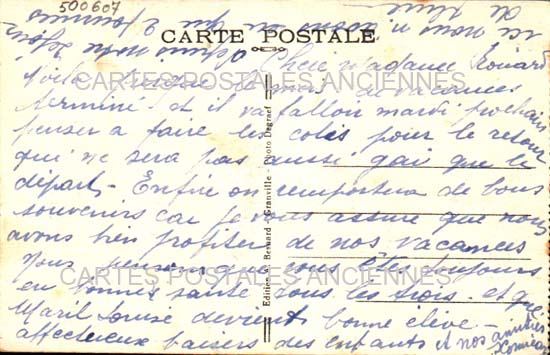 500607
CARTE POSTALE
CARTES POSTALES ANCIENNES
Chère madame
Voila presque le mois de vacances
terminé et il va falloir mardi prochain
penser a faire les colis pour le retour
qui ne sera pas aussi gai que le
départ - Enfin on emportera de bons
souvenirs car je vous assure que nous
avons bien profiter de nos vacances
Nous pensons que vous êtes toujours
CARTES POSTALES ANCIENNES
en bonne santé tous les trois. et que
Marie Louise devient bonne élève -
affectueux baisers des enfants et nos amitiés
Edition de Bernard - Granville - Photo Degraef